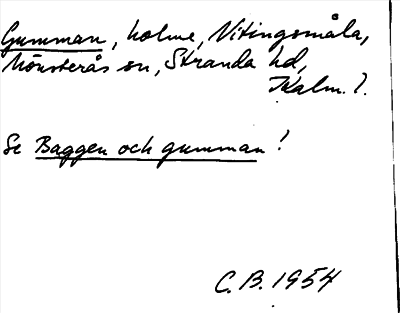 Gumman, holme, Vitingsmåla,
Mönsterås sn, Stranda hd,
Kalm. l.
Se Baggen och gumman!
C.B. 1954